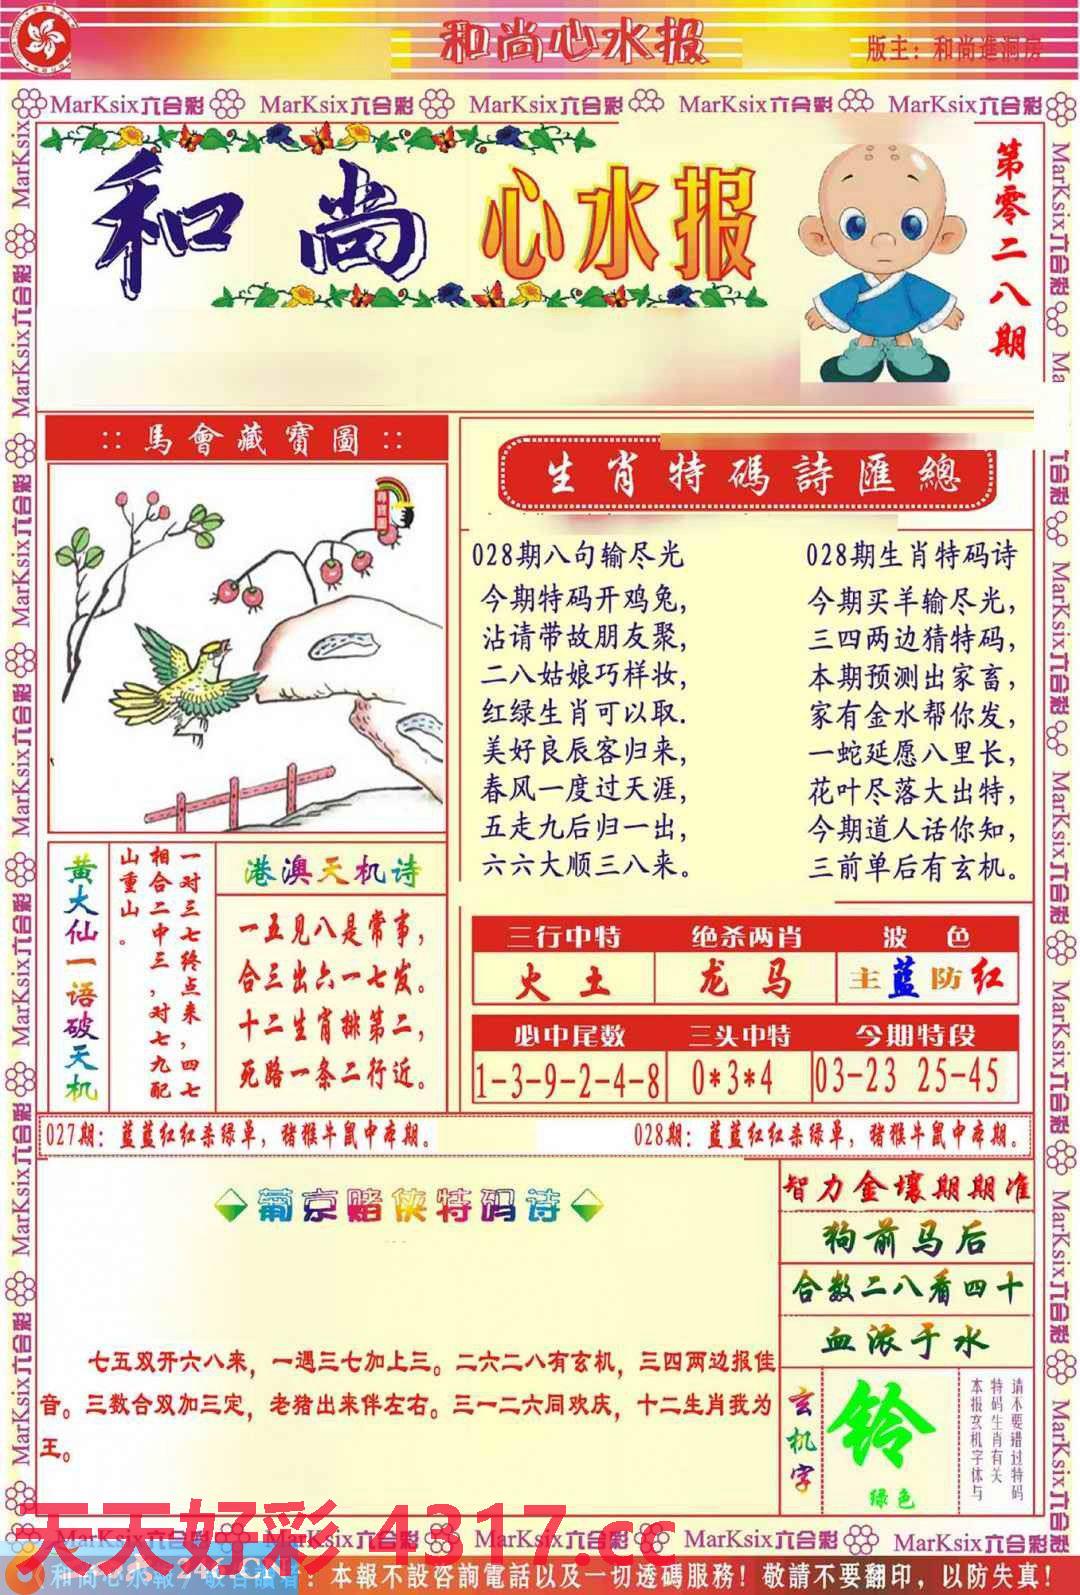 和尚心水报
版主：和尚進洞房
MarKsix六合彩 MarKsix六合彩 MarKsix六合彩 MarKsix六合彩 MarKsix六合彩
和尚 心水报
第零二八期
馬會藏寶圖
尋寶圖
生肖特碼詩匯總
028期八句输尽光
今期特码开鸡兔，
沾请带故朋友聚，
二八姑娘巧样妆，
红绿生肖可以取.
美好良辰客归来，
春风一度过天涯，
五走九后归一出，
六六大顺三八来。
028期生肖特码诗
今期买羊输尽光，
三四两边猜特码，
本期预测出家畜，
家有金水帮你发，
一蛇延愿八里长，
花叶尽落大出特，
今期道人话你知，
三前单后有玄机。
黄大仙一语破天机
一对三七终点来，四七
相合二中三，对七九配
山重山。
港澳天机诗
一五见八是常事，
合三出六一七发。
十二生肖排第二，
死路一条二行近。
三行中特 绝杀两肖 波色
火土 龙马 主蓝防红
必中尾数 三头中特 今期特段
1-3-9-2-4-8 0*3*4 03-23 25-45
027期：蓝蓝红红杀绿单，猪猴牛鼠中本期。
028期：蓝蓝红红杀绿单，猪猴牛鼠中本期。
葡京赌侠特码诗
七五双开六八来，一遇三七加上三。二六二八有玄机，三四两边报佳
音。三数合双加三定，老猪出来伴左右。三一二六同欢庆，十二生肖我为
王。
智力金壤期期准
狗前马后
合数二八看四十
血浓于水
玄机字
铃
绿色
请不要错过特码
特码生肖有关
本报玄机字体与
MarKsix六合彩 MarKsix六合彩 MarKsix六合彩 MarKsix六合彩 MarKsix六合彩
天天好彩 4317.cc
和尚心水報／敬告讀者：本報不設咨詢電話以及一切透碼服務！敬請不要翻印，以防失真！